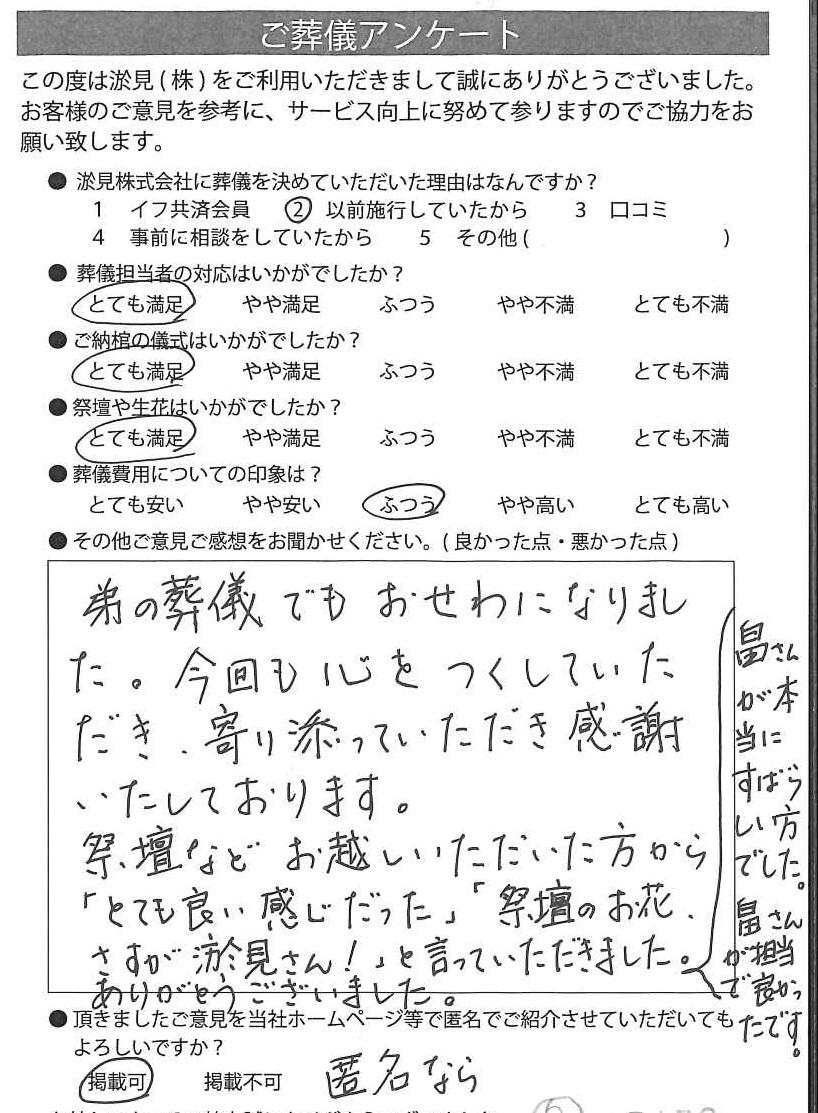 ご葬儀アンケート
この度は淤見(株)をご利用いただきまして誠にありがとうございました。
お客様のご意見を参考に、サービス向上に努めて参りますのでご協力をお
願い致します。
● 淤見株式会社に葬儀を決めていただいた理由はなんですか?
1 イフ共済会員 ② 以前施行していたから 3 口コミ
4 事前に相談をしていたから 5 その他( )
● 葬儀担当者の対応はいかがでしたか?
とても満足 やや満足 ふつう やや不満 とても不満
● ご納棺の儀式はいかがでしたか?
とても満足 やや満足 ふつう やや不満 とても不満
● 祭壇や生花はいかがでしたか?
とても満足 やや満足 ふつう やや不満 とても不満
● 葬儀費用についての印象は?
とても安い やや安い ふつう やや高い とても高い
● その他ご意見ご感想をお聞かせください。(良かった点・悪かった点)
弟の葬儀でもおせわになりまし
た。今回も心をつくしていた
だき、寄り添っていただき感謝
いたしております。
祭壇などお越しいただいた方から
「とても良い感じだった」「祭壇のお花、
さすが淤見さん!」と言っていただきました。
ありがとうございました。
畠さん
が本
当に
すばら
しい方
でした。
畠さん
が担当
で良かっ
たです。
● 頂きましたご意見を当社ホームページ等で匿名でご紹介させていただいても
よろしいですか?
掲載可 掲載不可 匿名なら